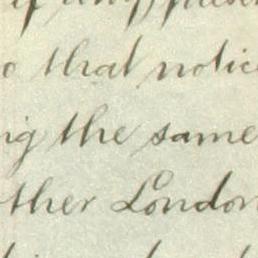 if any
o that notic
ng the same
ther London